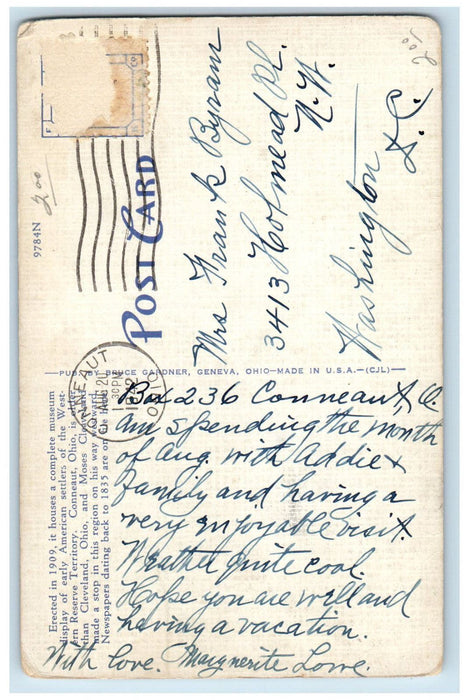 Erected in 1909, it houses a complete museum
display of early American settlers of the West-
ern Reserve Territory. Conneaut, Ohio, is older
than Cleveland, Ohio, and Moses Cleaveland
made a stop in this region on his way westward.
Newspapers dating back to 1835 are on
9784N
200
PUB. BY BRUCE GARDNER, GENEVA, OHIO—MADE IN U.S.A.—(CJL)
POST CARD
CONNEAUT
AUG 20
130PM
OHIO
200
Mrs Frank Byram
3413 Holmead Pl.
N.W.
Washington
D.C.
Box 236 Conneaut, O.
am spending the month
of Aug. with Addie &
family and having a
very enjoyable visit.
Weather quite cool.
Hope you are well and
having a vacation.
With love. Marguerite Lowe.